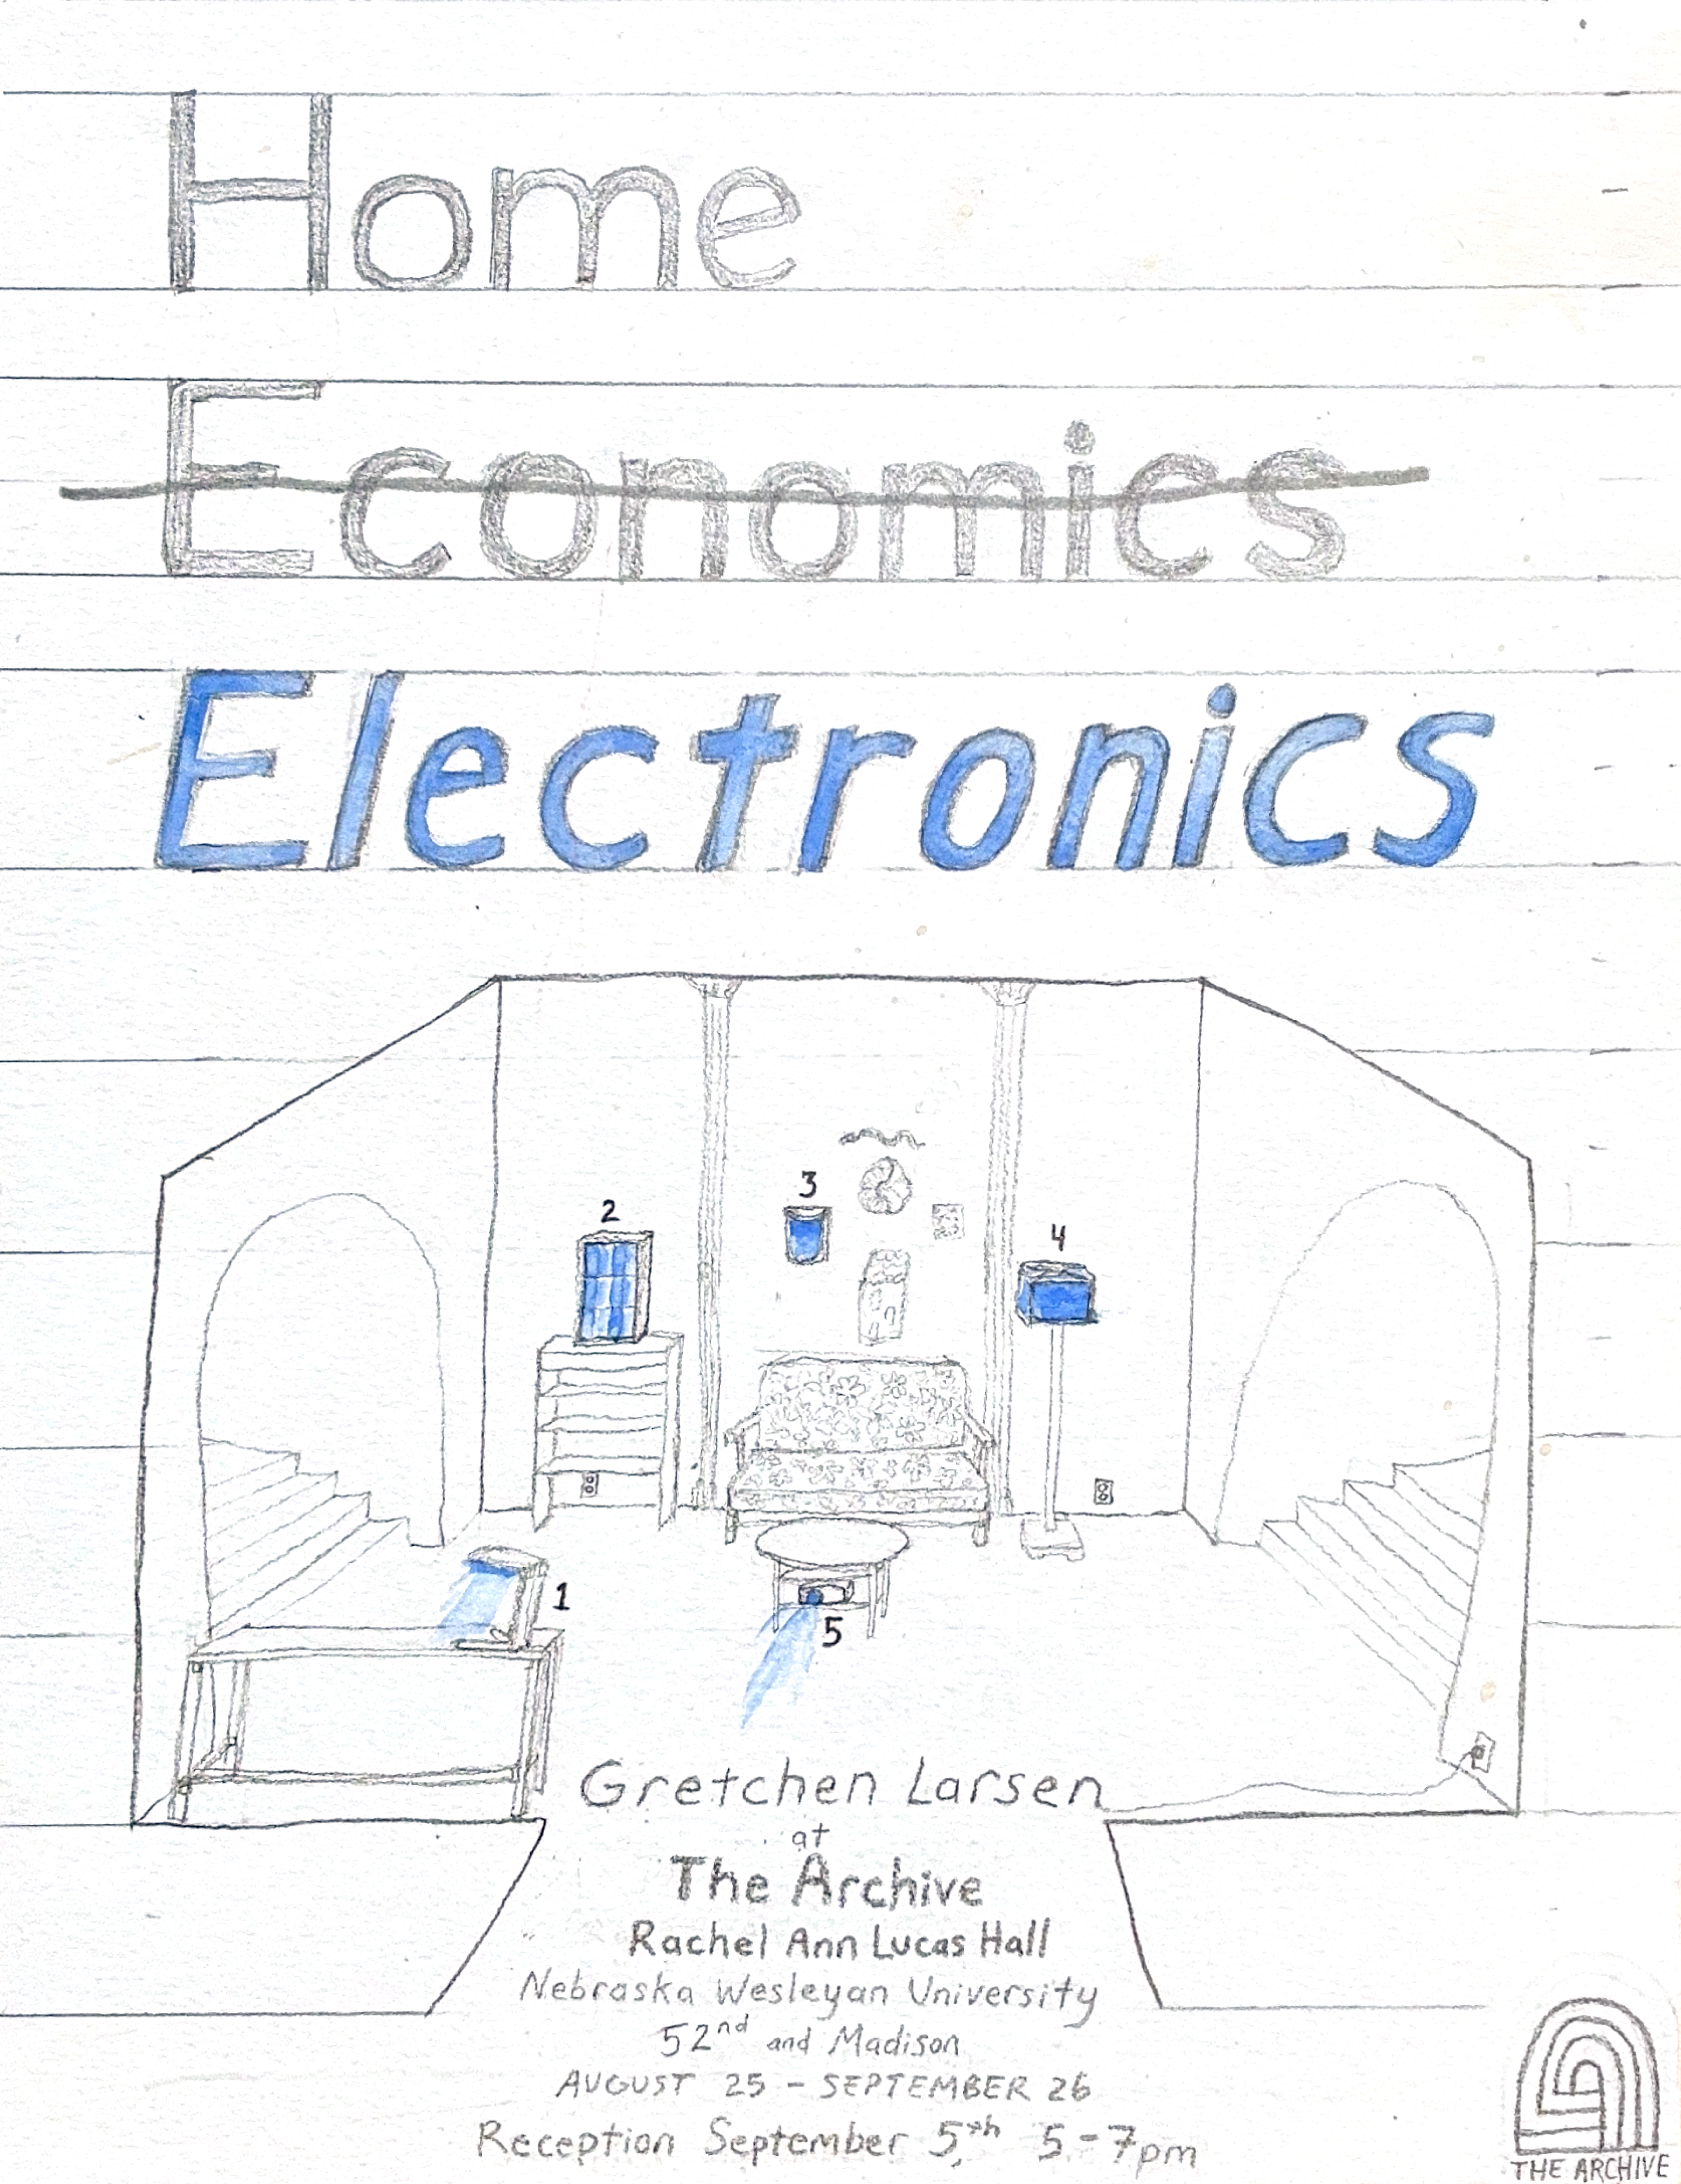 Home
Economics
Electronics
3
2
4
1
5
Gretchen Larsen
at
The Archive
Rachel Ann Lucas Hall
Nebraska Wesleyan University
52nd and Madison
AUGUST 25 - SEPTEMBER 26
Reception September 5th, 5-7pm
THE ARCHIVE